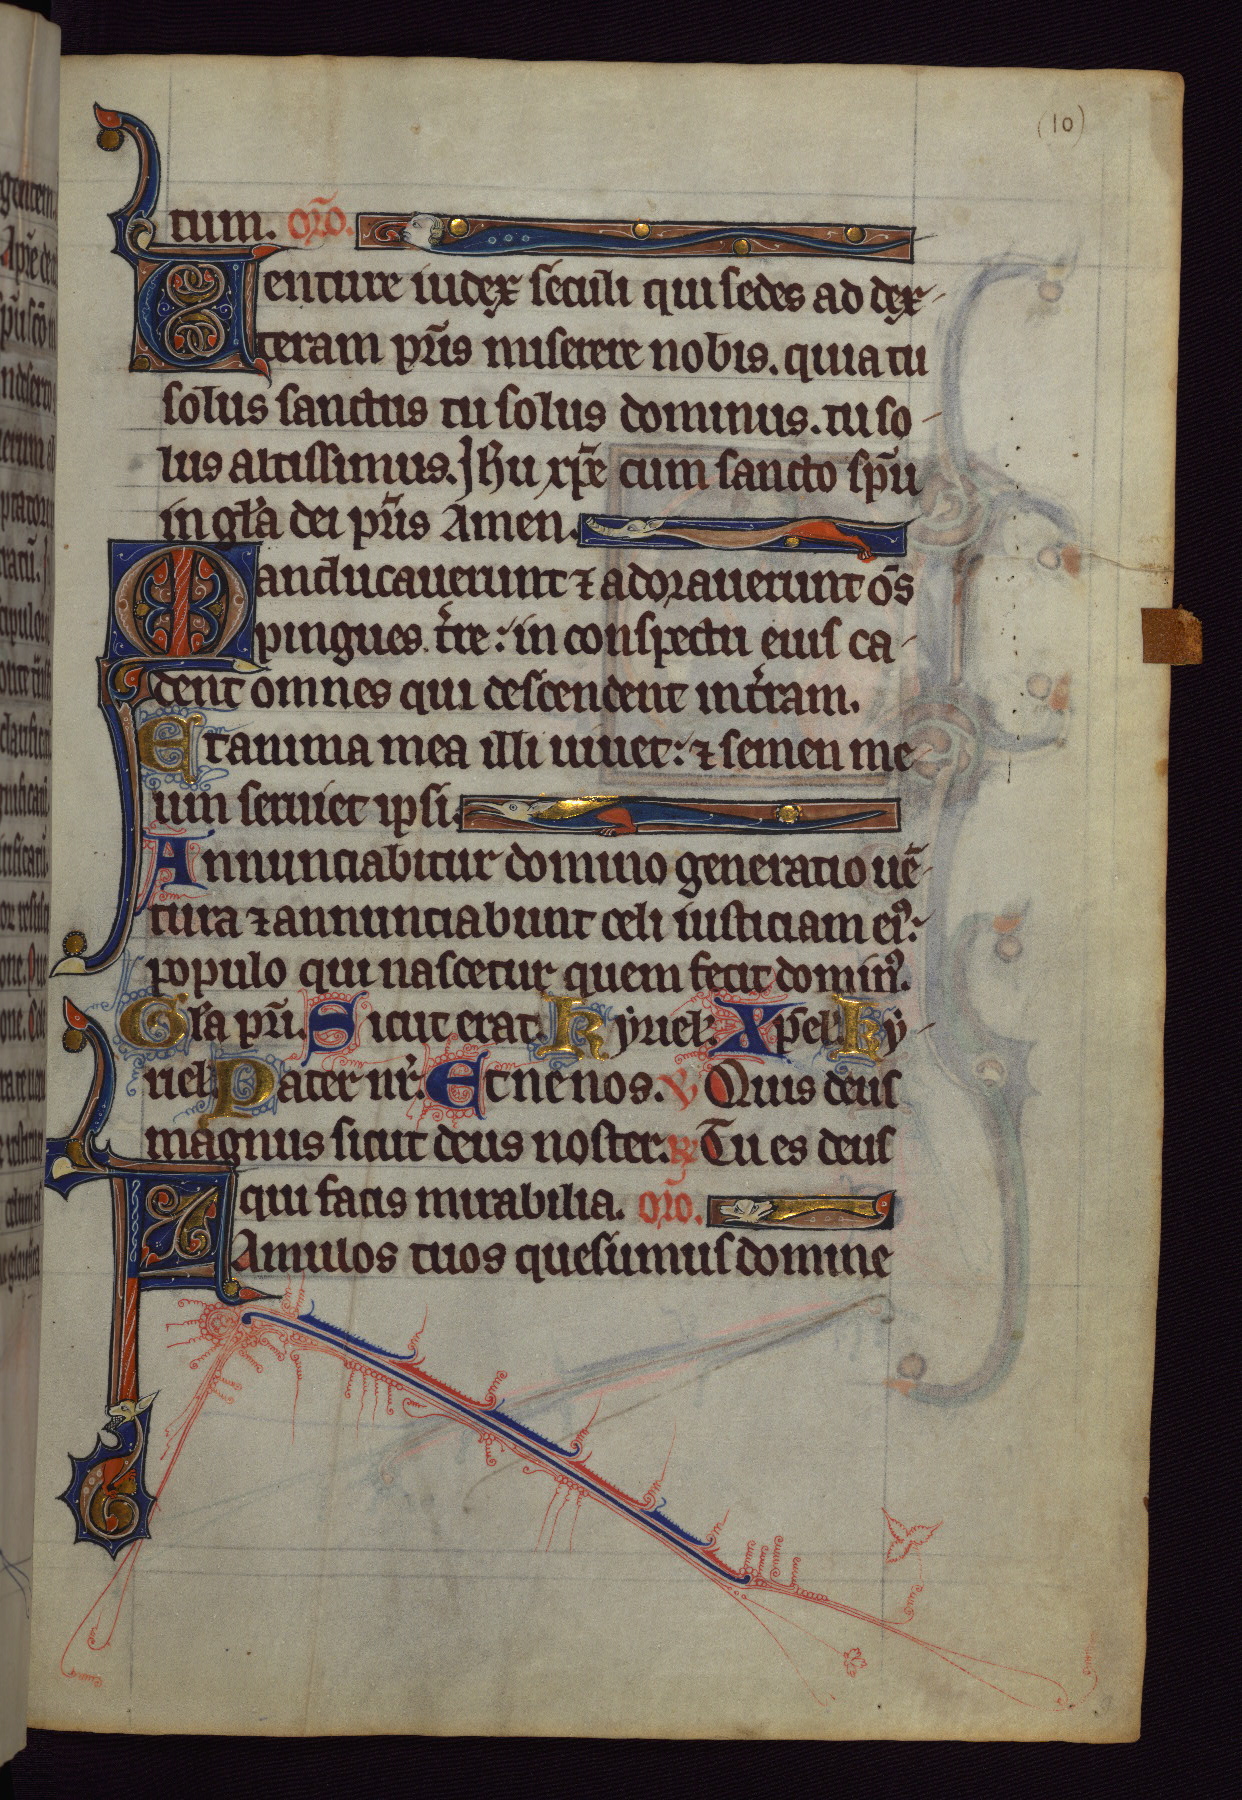 (10)
tum. oro̅.
Senture iudex seculi qui sedes ad dex-
teram pr̅is miserere nobis. quia tu
solus sanctus tu solus dominus. tu so-
lus altissimus. Jhu xp̅e cum sancto sp̅u
in gl̅a dei pr̅is Amen.
Manducauerunt ⁊ adorauerunt om̅s
pingues t̅re: in conspectu eius ca-
dent omnes qui descendent in t̅ram.
Et anima mea illi uiuet: ⁊ semen me-
um seruiet ipsi.
Annunciabitur domino generatio ue̅-
tura ⁊ annunciabunt celi iusticiam eiꝰ:
populo qui nascetur quem fecit dominꝰ.
Gl̅a pr̅i. Sicut erat. Kyriel̅. Xp̅el̅. Ky-
riel̅. Pater nr̅. Et ne nos. ℣ Quis deus
magnus sicut deus noster. ℟ Tu es deus
qui facis mirabilia. oro̅.
Famulos tuos quesumus domine